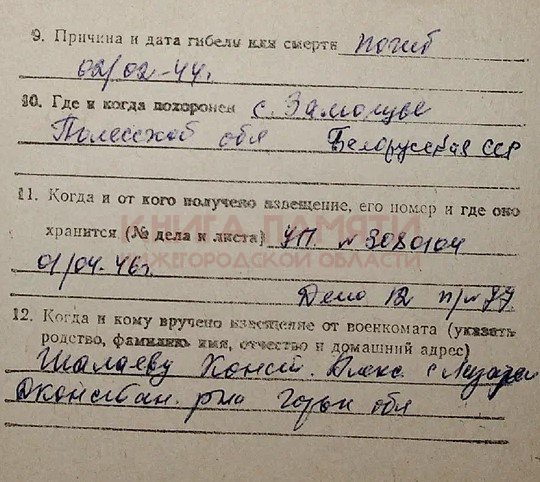 9. Причина и дата гибели или смерти погиб
02/02-44 г.
10. Где и когда похоронен с. Замощье
Полесской обл Белорусская ССР
11. Когда и от кого получено извещение, его номер и где оно
КНИГА ПАМЯТИ
хранится (№ дела и листа) УП №3080104
НИЖЕГОРОДСКОЙ ОБЛАСТИ
01/04-46 г.
Дело 12 п/№77
12. Когда и кому вручено извещение от военкомата (указать
родство, фамилию имя, отчество и домашний адрес)
Шалаеву Конст. Алекс. с
р-на Горьк обл